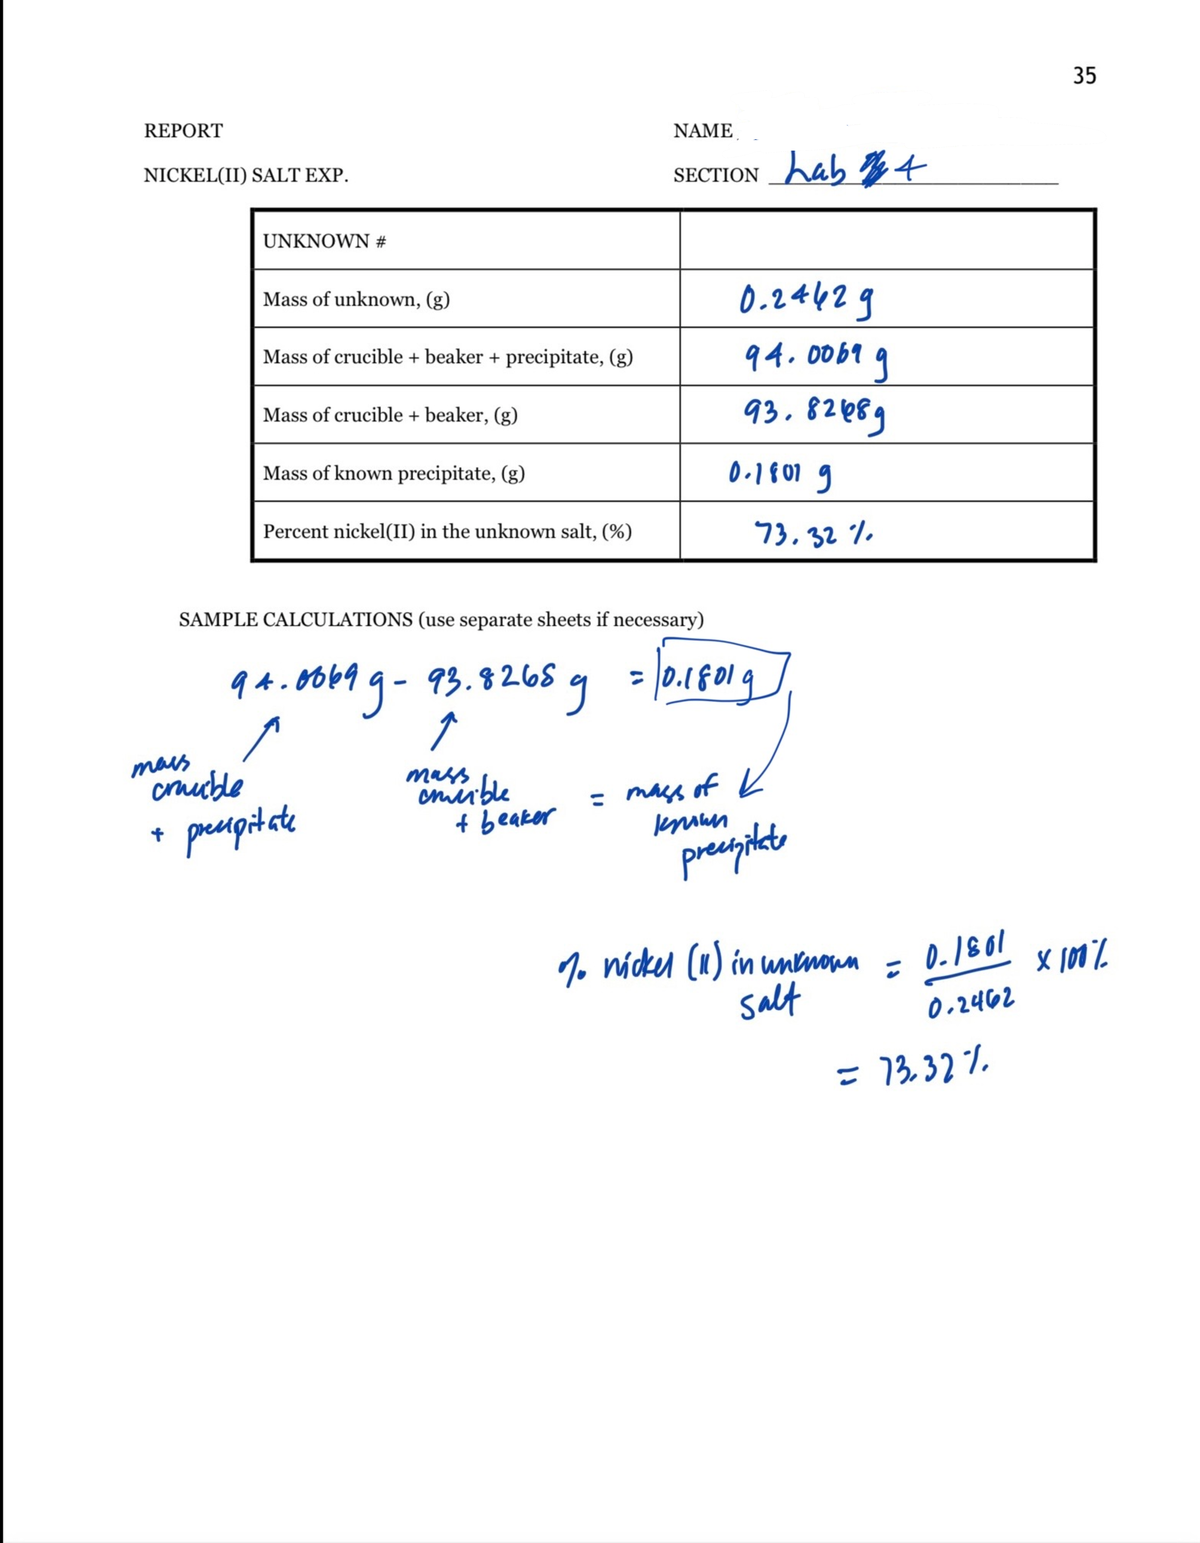 35
REPORT
NAME
NICKEL(II) SALT EXP.
SECTION Lab 4
UNKNOWN #
Mass of unknown, (g) 0.2462 g
Mass of crucible + beaker + precipitate, (g) 94.0069 g
Mass of crucible + beaker, (g) 93.8268 g
Mass of known precipitate, (g) 0.1801 g
Percent nickel(II) in the unknown salt, (%) 73.32 %
SAMPLE CALCULATIONS (use separate sheets if necessary)
94.0069 g - 93.8268 g = 0.1801 g
mass crucible + precipitate
mass crucible + beaker
= mass of known precipitate
% nickel (II) in unknown salt = 0.1801 / 0.2462 x 100%
= 73.32 %